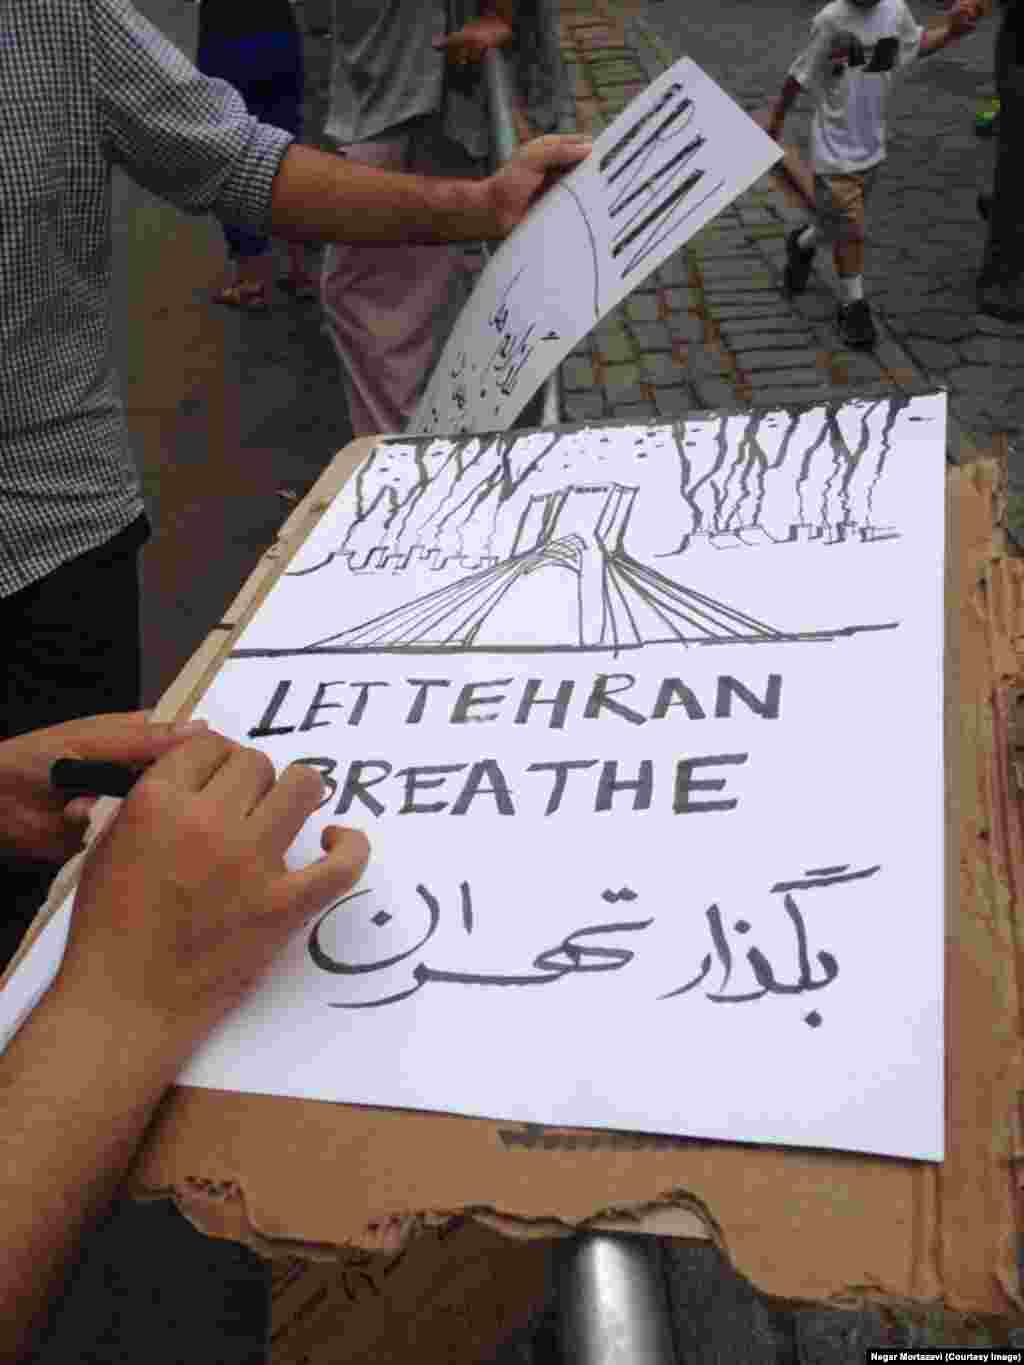 LET TEHRAN
BREATHE
بگذار تهران
Negar Mortazavi (Courtesy Image)